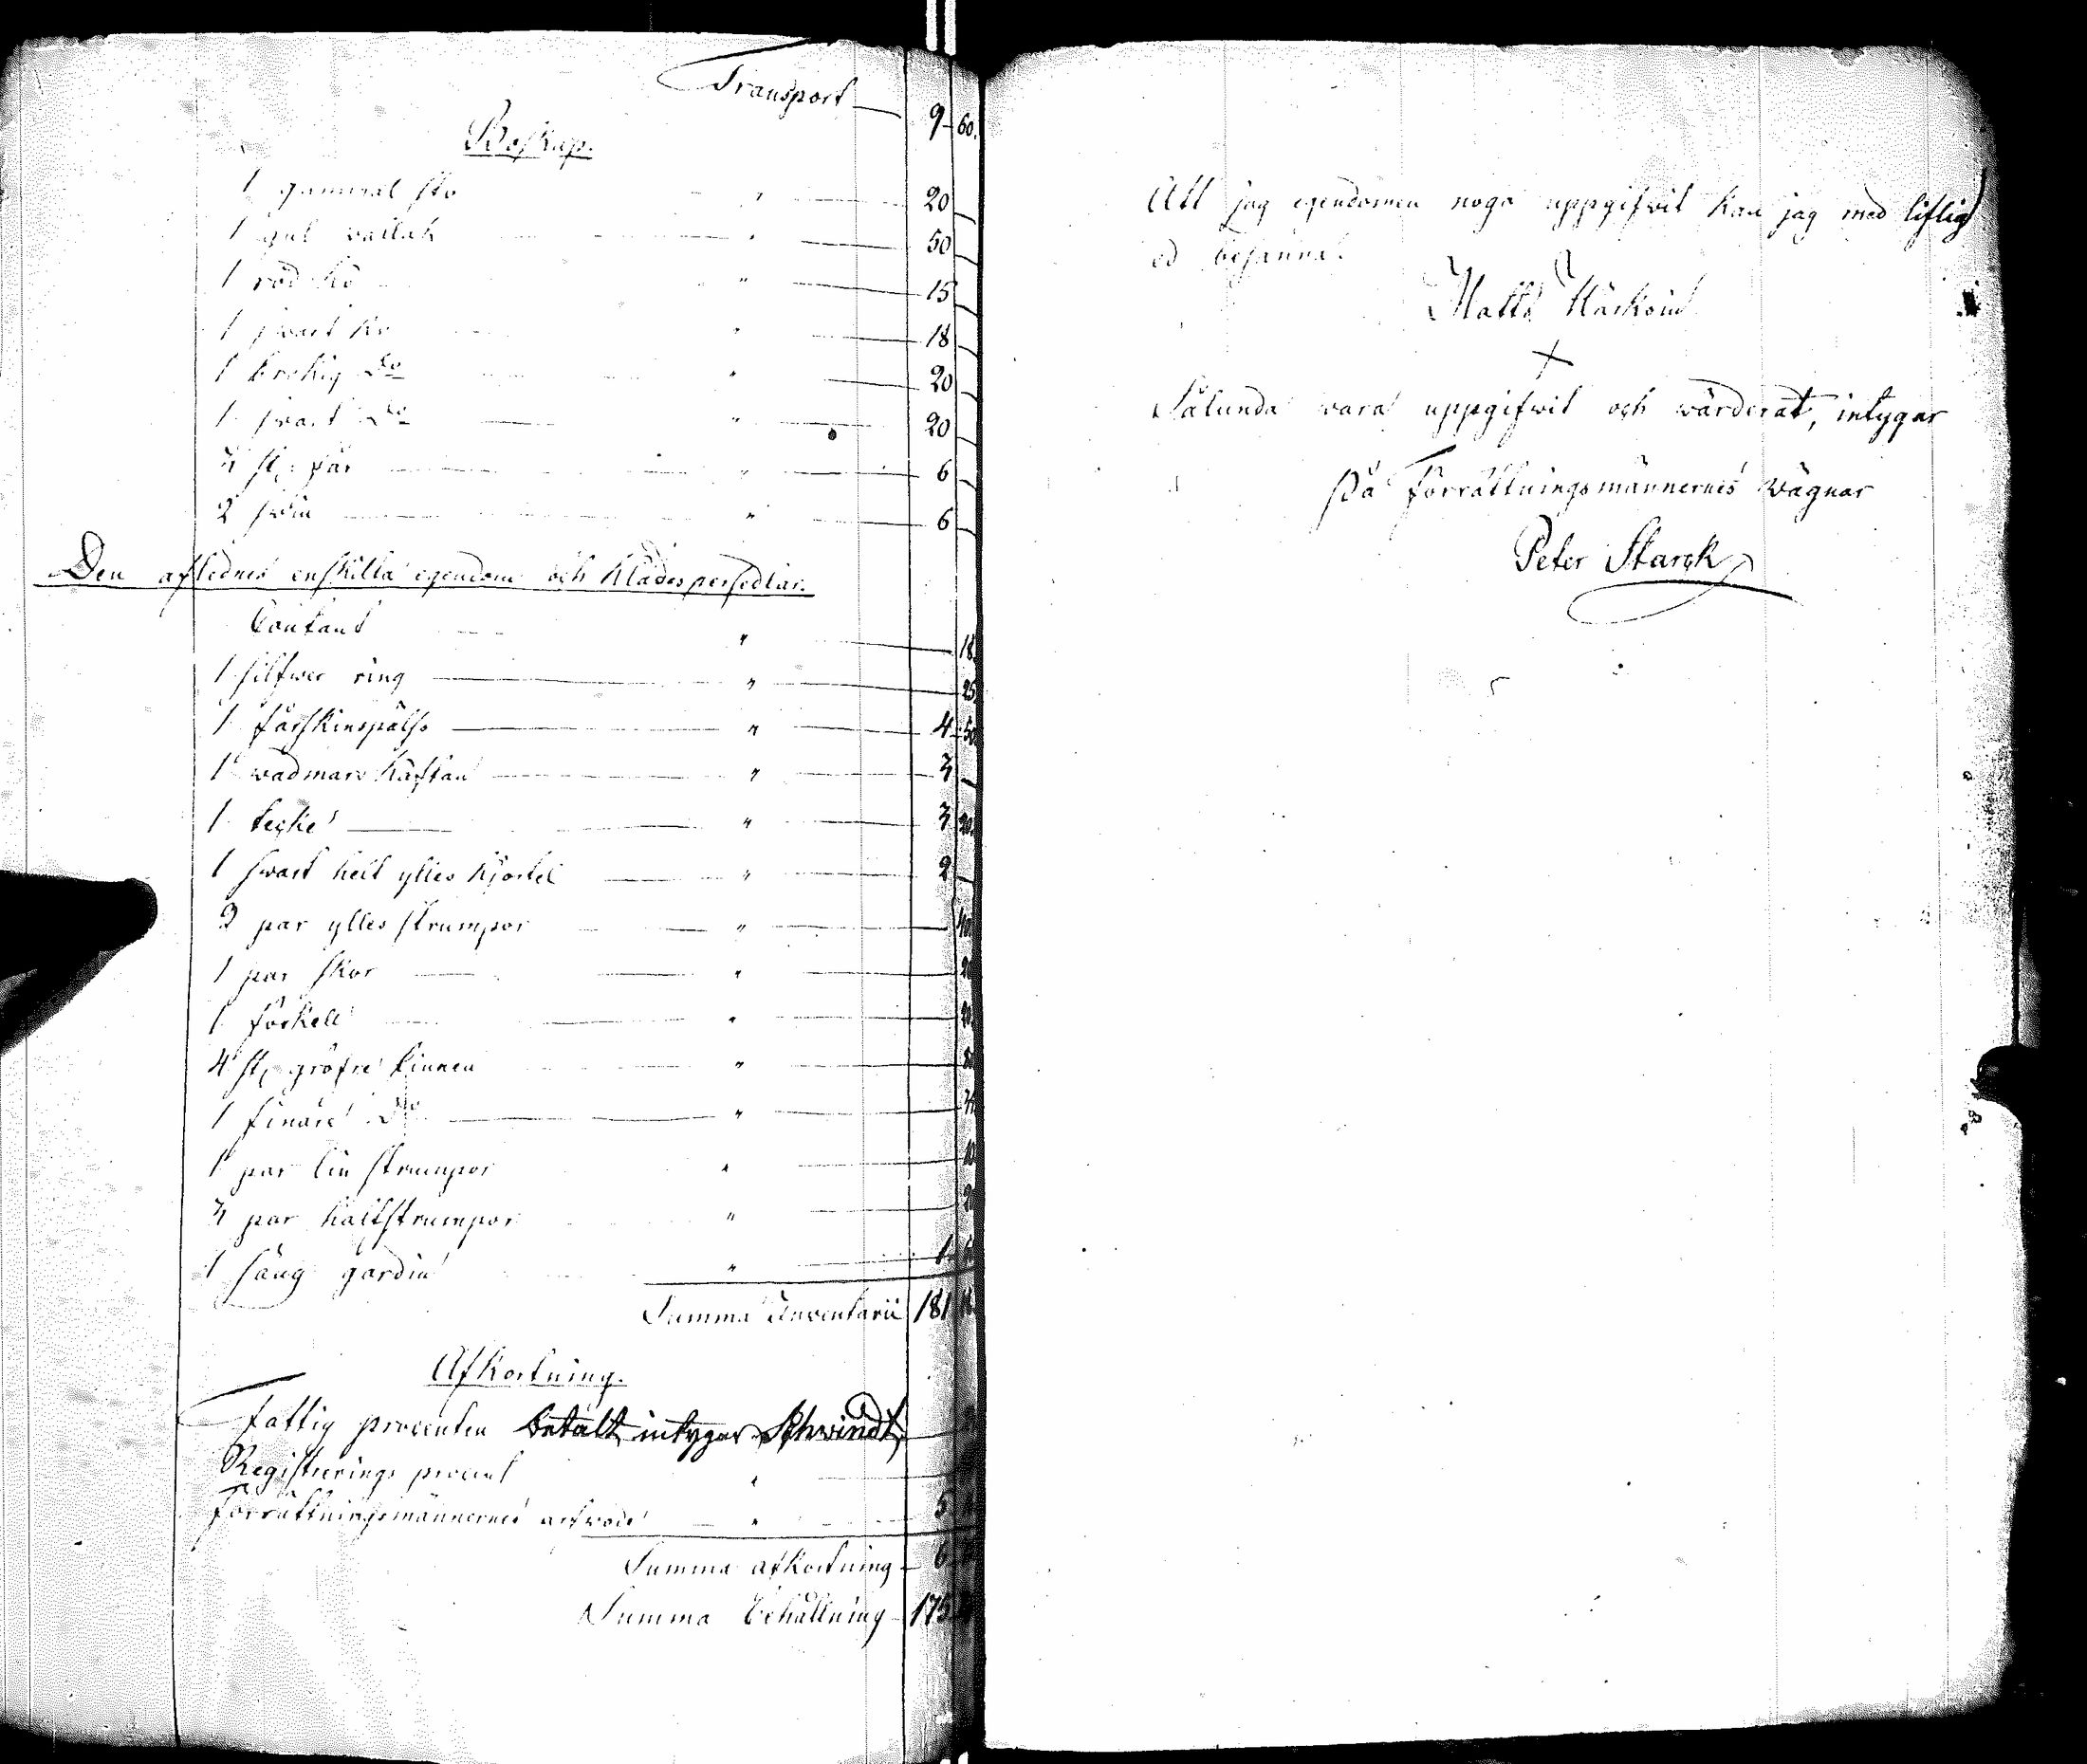 Transport 9 60.
Boskap.
1 gammal sto " 20 —
1 gul vallak " 50 —
1 röd ko " 15 —
1 swart ko " 18 —
1 brokig Do " 20 —
1 swart Do " 20 —
3 st. får " 6 —
2 swin " 6 —
Den aflednes enskilla egendom och klädespersedlar.
Contant " 18
1 silfwer ring " 25
1 fårskinspälss " 4 50
1 wadmars kaftan " 3 —
1 tecke " 3 20.
1 swart helt ylles kjortel " 2 —
2 par ylles strumpor " 40
1 par skor "
1 förkell "
4 st. gröfre linnen "
1 finare Do "
1 par lin strumpor "
3 par halfstrumpor "
1 säng gardin " 1
Summa Inventarii 181
Afkortning.
Fattig procenten betalt, intygar Schwindt,
Registrerings procent "
Förrättningsmännernes arfwode " 5
Summa afkortning 6
Summa Behållning 175
Att jag egendomen noga uppgifwit kan jag med liflig
ed besanna.
Matts Härkön
X
Sålunda vara uppgifwit och wärderat, intygar
på Förrättningsmännernes wägnar
Peter Starck